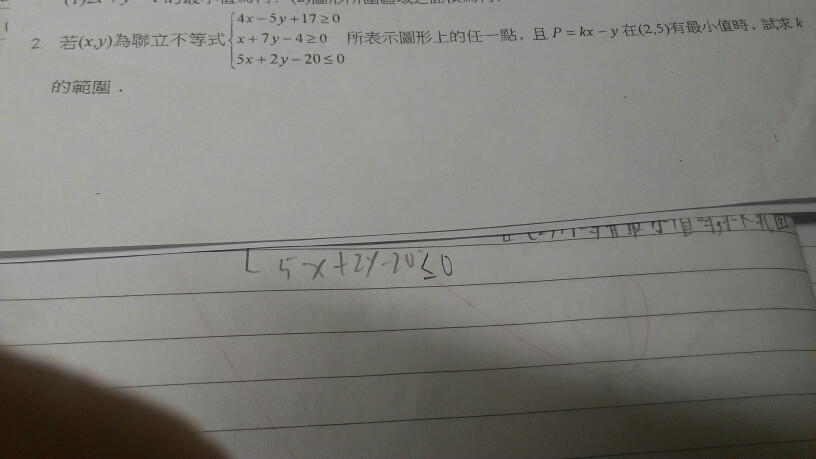 2. 若(x,y)為聯立不等式{4x-5y+17≥0
x+7y-4≥0
5x+2y-20≤0 所表示圖形上的任一點，且 P = kx - y 在(2,5)有最小值時，試求 k
的範圍．
5x+2y-20≤0